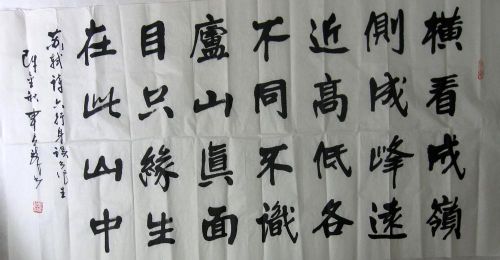 橫看成嶺
側成峰遠
近高低各
不同不識
廬山眞面
目只緣生
在此山中
蘇軾詩